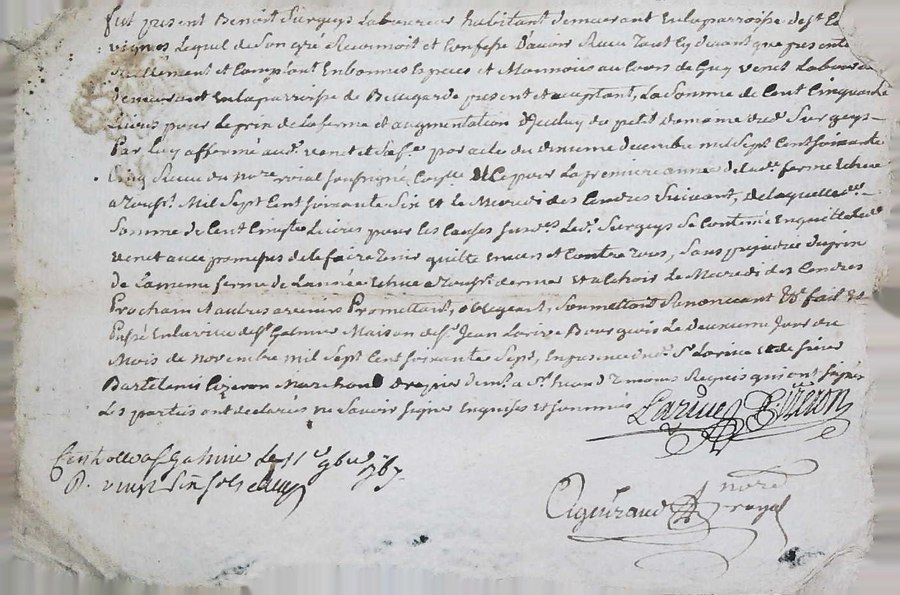 fut present Benoist Surguys Laboureur habitant demeurant En la parroisse de st
vignes Lequel de son gré Reconnoit et Confesse D'avoir Reçu Tout Cy devant que presente
Reellement et Comptant En bonnes Especes et Monnoies au Cours de Guy venet Laboureur
demeurant En la parroisse de Bellegarde present et acceptant, La Somme de Cent Cinquante
Livres pour Le prix de La ferme et augmentation du petit domaine dud. Surguys
Par Luy affermé aud. venet par acte du dixieme decembre mil Sept Cent Soixante
Cinq Reçu du nore royal soussigné Et Ce pour La premiere année de lad. ferme Echue
a Toussts. Mil Sept Cent Soixante Six et le Mecredi des Cendres Suivant, de laquelle de.
Somme de Cent Cinqte Livres pour les Causes Susd. Led. Surguys Se Contente En quitte led.
venet avec promesse de le faire Tenir quitte Envers et Contre Tous, Sans prejudice du prix
de La meme ferme de L'année Echue a Toussts. dernier et a Echoir de Mecredi des Cendres
Prochain et autres a venir Promettant, obligeant, Soumettant Renonceant &c. fait Et
Passé En la ville de st. Galmier Maison de sr. Jean Larive Bourgeois Le deuxieme Jour du
Mois de novembre mil Sept Cent Soixante Sept, En presence dud. Sr. Larive Et de sieur
Bartelemi Cizeron Marchand drapier demt. a St. Temoins Requis qui ont signé
Les parties ont declarés ne Savoir signer Enquises et Sommés
Larive Cizeron
Controllé a St Galmier le 11e 9bre 1767
R. vingt Six sols
nore
royal